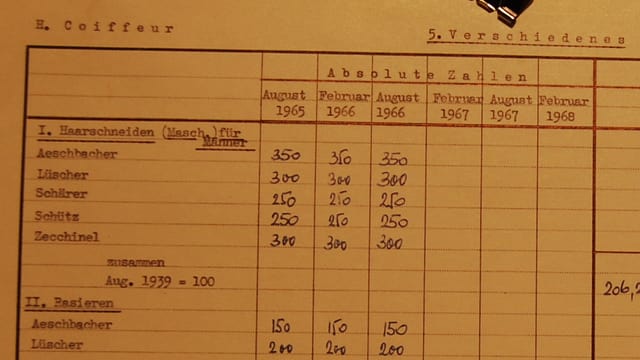 H. Coiffeur
5. Verschiedenes
Absolute Zahlen
August Februar August Februar August Februar
1965 1966 1966 1967 1967 1968
I. Haarschneiden (Masch.) für
Männer
Aeschbacher 350 350 350
Lüscher 300 300 300
Schärer 250 250 250
Schütz 250 250 250
Zecchinel 300 300 300
zusammen
Aug. 1939 = 100
II. Rasieren
Aeschbacher 150 150 150
Lüscher 200 200 200